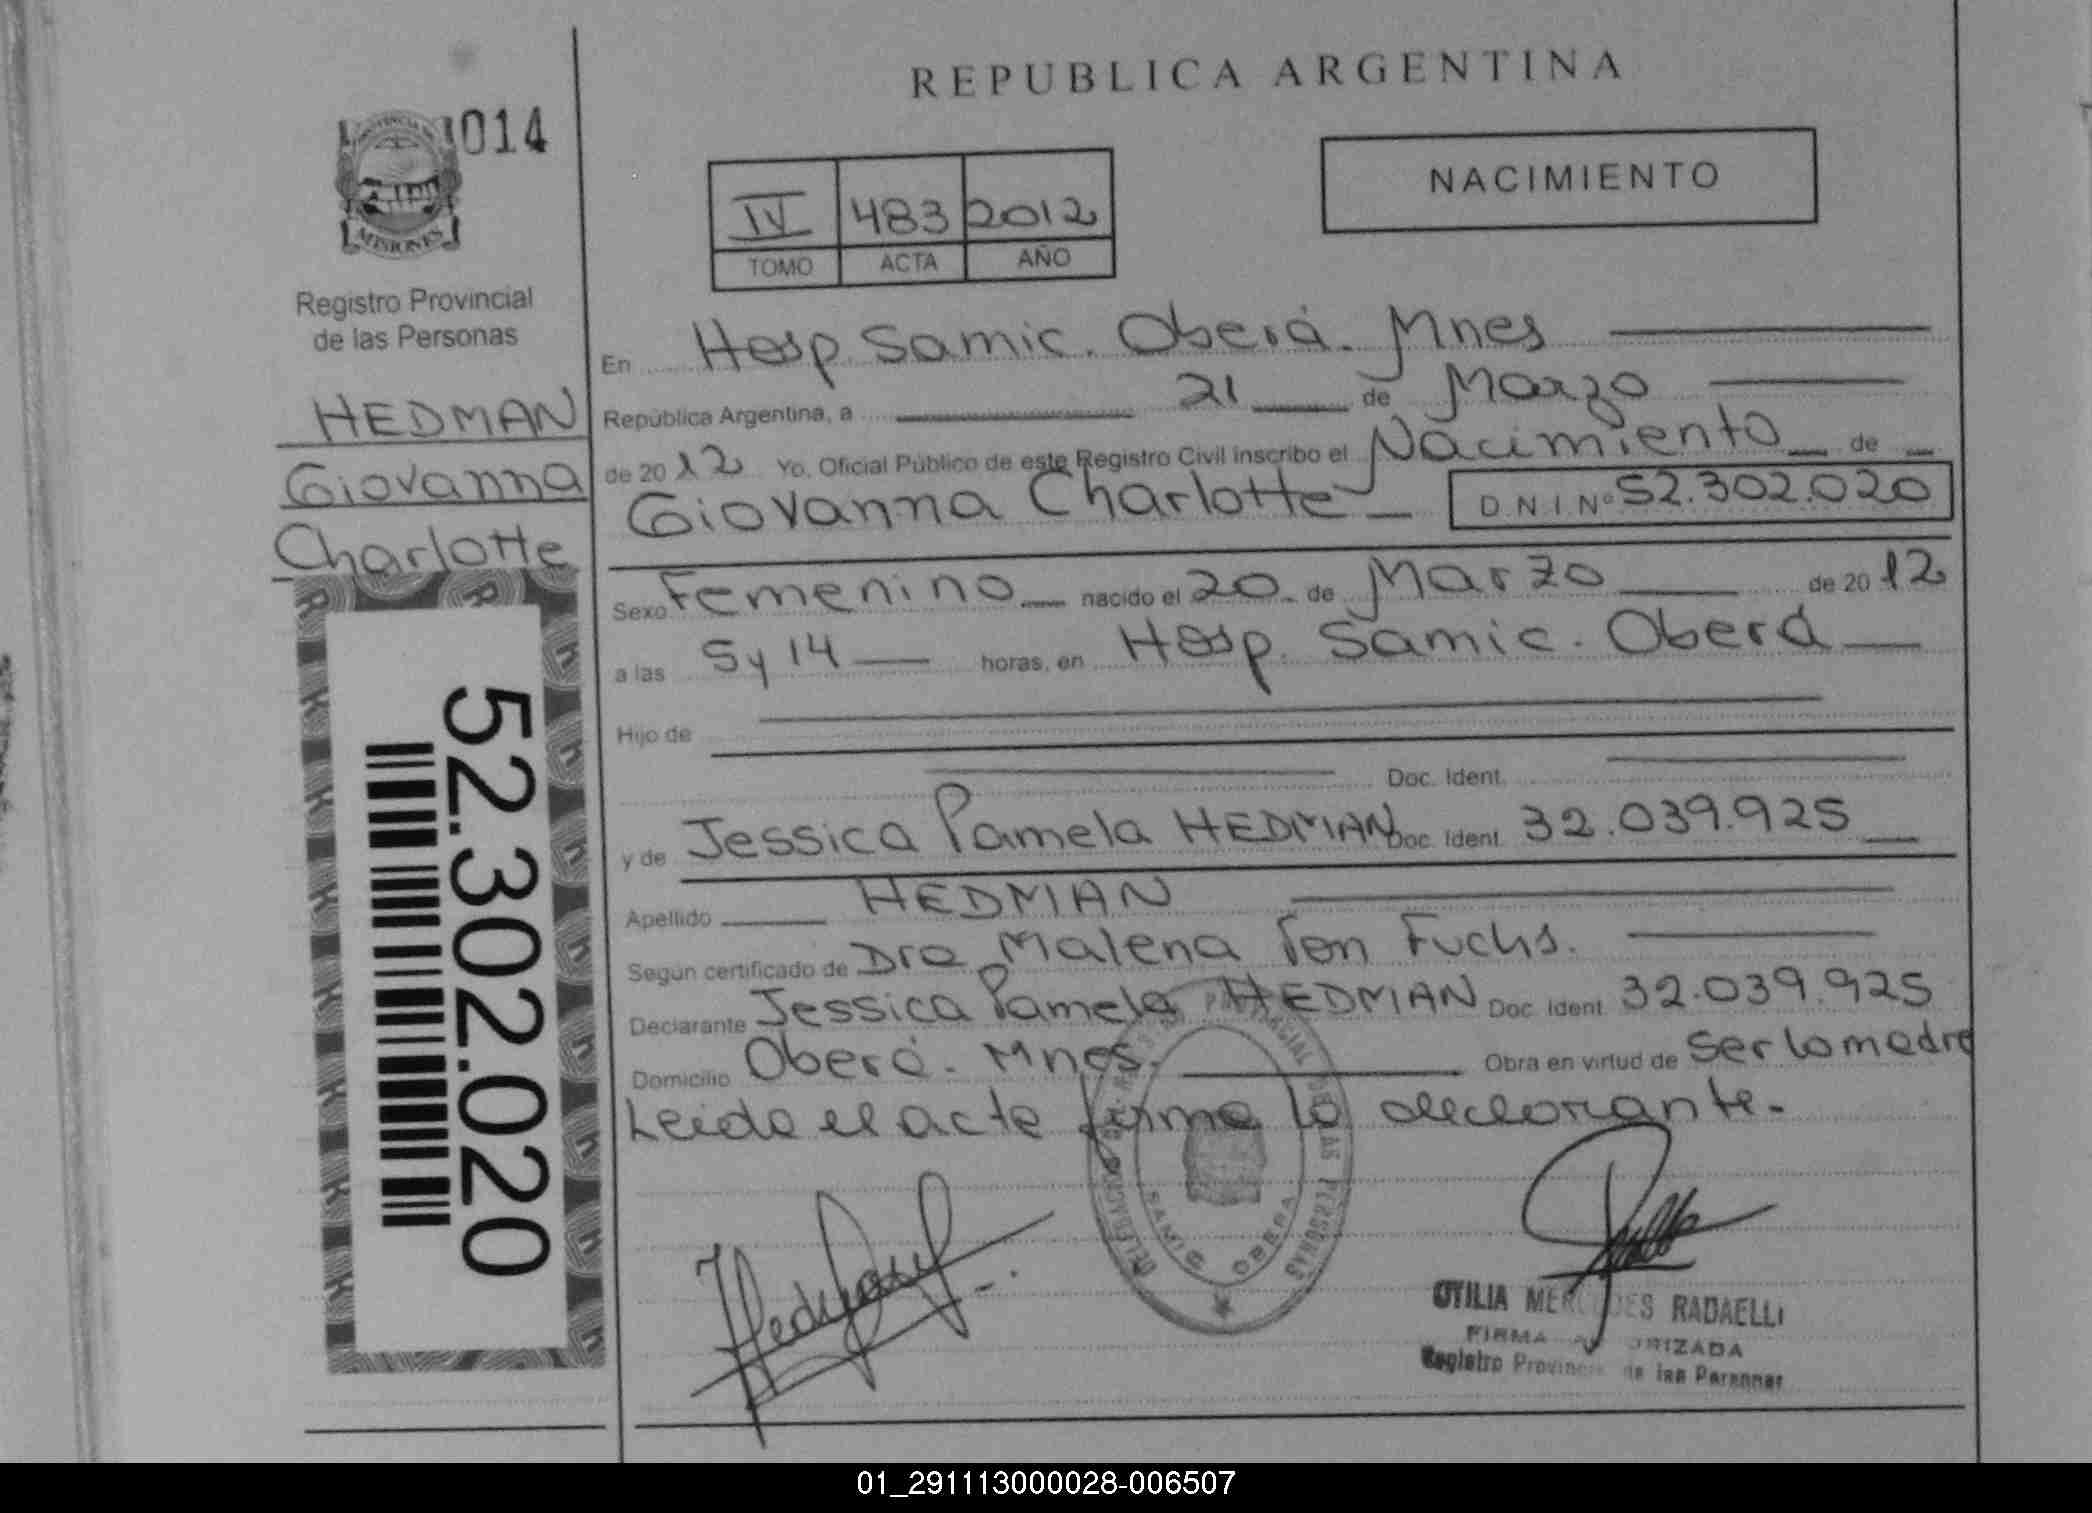 REPUBLICA ARGENTINA
PROVINCIA DE
MISIONES
014
Registro Provincial
de las Personas
HEDMAN
Giovanna
Charlotte
52.302.020
IV 483 2012
TOMO ACTA AÑO
NACIMIENTO
En Hosp. Samic. Oberá. Mnes
República Argentina, a 21 de Marzo
de 2012 Yo, Oficial Público de este Registro Civil inscribo el Nacimiento de
Giovanna Charlotte D.N.I. Nº 52.302.020
Sexo Femenino nacido el 20 de Marzo de 2012
a las 5 y 14 horas, en Hosp. Samic. Oberá
Hijo de
Doc. Ident.
y de Jessica Pamela HEDMAN Doc. Ident. 32.039.925
Apellido HEDMAN
Según certificado de Dra Malena Fuchs.
Declarante Jessica Pamela HEDMAN Doc. Ident. 32.039.925
Domicilio Oberá. Mnes. Obra en virtud de ser la madre
Leida el acta firma la declarante.
DE LAS PERSONAS
SAMIC OBERA
OTILIA MERCEDES RADAELLI
FIRMA AUTORIZADA
Registro Provincial de las Personas
01_291113000028-006507